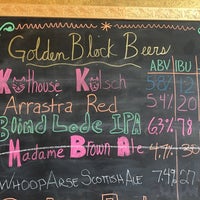 Golden Block Beers
ABV IBU
Kathouse Kolsch 5.8% 12
Arrastra Red 5.4% 20
Blind Lode IPA 6.3% 78
Madame Brown Ale 4.7% 30
Whoop Arse Scottish Ale 7.4% 27